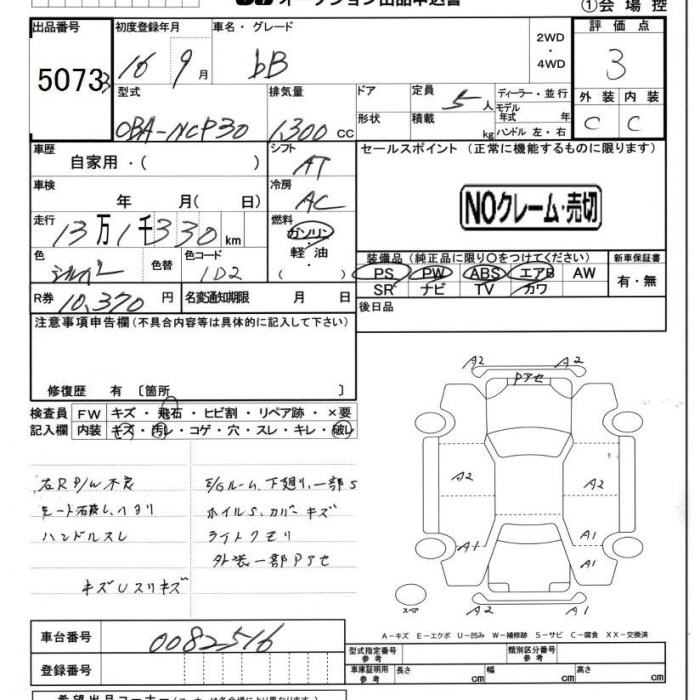 オークション出品申込書
①会場控
出品番号 初度登録年月 車名・グレード 2WD・4WD 評価点
5073 16 9月 bB 3
型式 排気量 ドア 定員 5人 ディーラー・並行 外装 内装
モデル年式 年
形状 積載 kg ハンドル 左・右
CBA-NCP30 1,300 CC C C
車歴 シフト セールスポイント(正常に機能するものに限ります)
自家用・( ) AT
車検 冷房
年 月( 日) AC
NOクレーム・売切
走行 燃料
13万1千330km ガソリン
軽油
( )
色 色替 色コード 装備品(純正品に限り○をつけてください) 新車保証書
シルバー 1D2 PS PW ABS エアB AW 有・無
SR ナビ TV カワ
R券 10,370円 名変通知期限 月 日 後日品
注意事項申告欄(不具合内容等は具体的に記入して下さい)
修復歴 有〔箇所 〕
検査員 FW キズ・飛石・ヒビ割・リペア跡・×要
記入欄 内装 キズ・汚レ・コゲ・穴・スレ・キレ・破レ
右RP/W不良
シート破レ、ヘタリ
ハンドルスレ
キズUスリキズ
E/Gルーム、下廻り、一部S
ホイルS、カバーキズ
ライトクモリ
外装一部Pアセ
A2 A2
Pアセ
A2 A2
A1 A1
A2 A1
スペア
A-キズ E-エクボ U-凹み W-補修跡 S-サビ C-腐食 XX-交換済
車台番号 0082516
型式指定番号 参考 類別区分番号 参考
登録番号
車庫証明用 参考 長さ cm 幅 cm 高さ cm